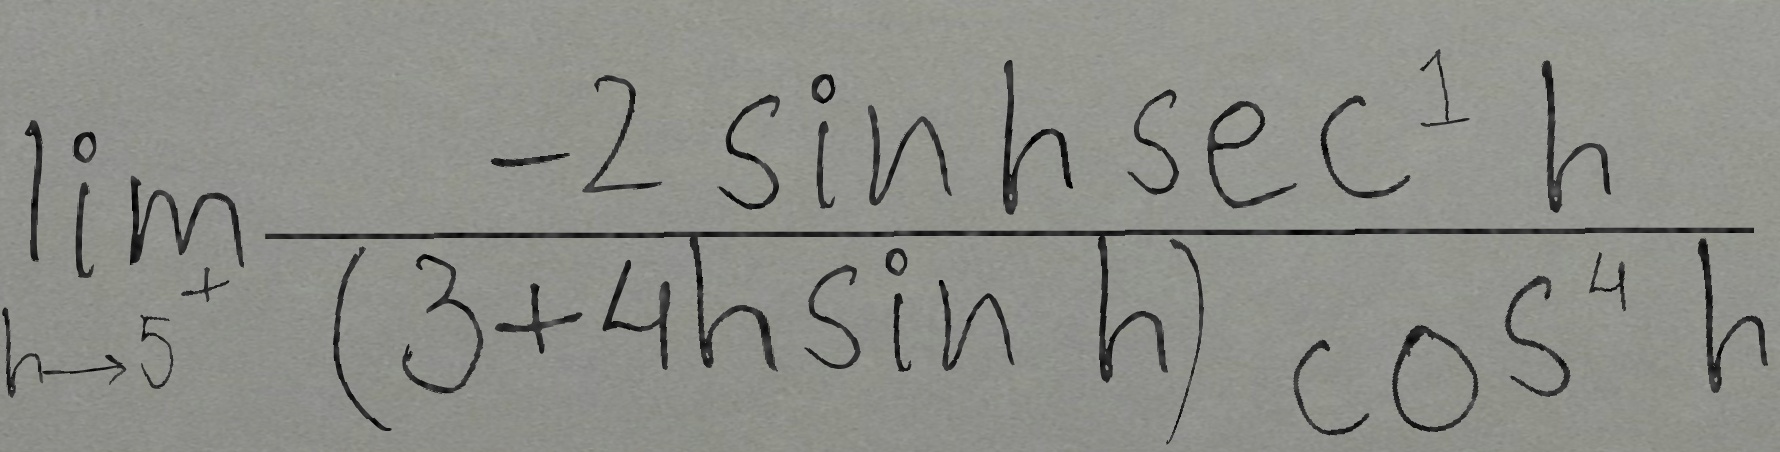 \lim_{h \to 5^+} \frac{-2 \sin h \sec^1 h}{(3+4h \sin h) \cos^4 h}